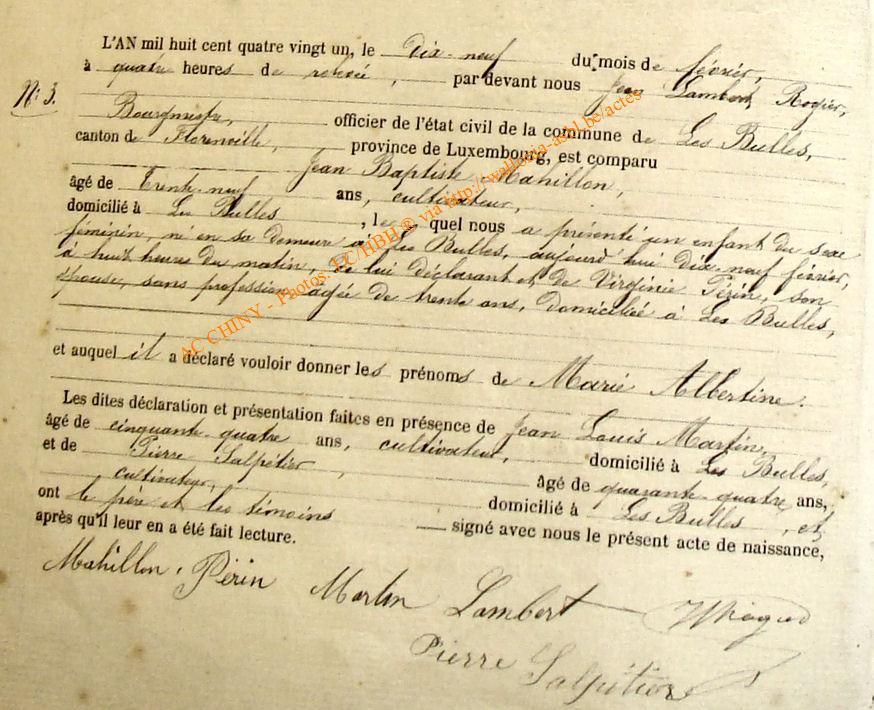 L'AN mil huit cent quatre vingt un, le Dix-neuf du mois de février,
à quatre heures de relevée, par devant nous Jean Lambert Rogier,
N° 3.
Bourgmestre, officier de l'état civil de la commune de Les Bulles,
canton de Florenville, province de Luxembourg, est comparu
Jean Baptiste Mahillon,
âgé de Trente-neuf ans, cultivateur,
domicilié à Les Bulles, le quel nous a présenté un enfant du sexe
féminin, né en sa demeure à Les Bulles, aujourd'hui dix-neuf février,
à huit heures du matin, de lui déclarant et de Virginie Périn, son
épouse, sans profession, agée de trente ans, domiciliée à Les Bulles,
et auquel il a déclaré vouloir donner les prénoms de Marie Albertine.
Les dites déclaration et présentation faites en présence de Jean Louis Martin,
âgé de cinquante-quatre ans, cultivateur, domicilié à Les Bulles,
et de Pierre Salpétier, âgé de quarante-quatre ans,
cultivateur, domicilié à Les Bulles, et
ont le père et les témoins signé avec nous le présent acte de naissance,
après qu'il leur en a été fait lecture.
Mahillon, Périn Martin Lambert
Pierre Salpétier
AC CHINY - Photos: LC/HBH ® via http://wallonia-asbl.be/actes